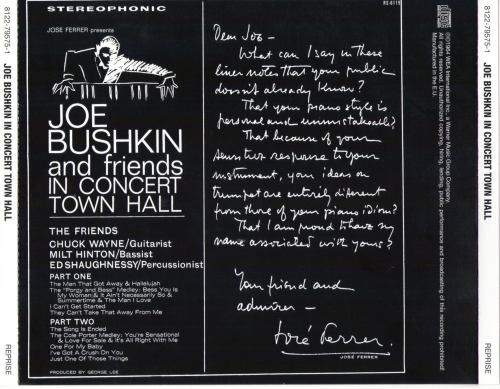 STEREOPHONIC
RS-6119
JOSE FERRER presents
JOE
BUSHKIN
and friends
IN CONCERT
TOWN HALL
THE FRIENDS
CHUCK WAYNE/Guitarist
MILT HINTON/Bassist
ED SHAUGHNESSY/Percussionist
PART ONE
The Man That Got Away & Hallelujah
The "Porgy and Bess" Medley: Bess You Is
My Woman & It Ain't Necessarily So &
Summertime & The Man I Love
I Can't Get Started
They Can't Take That Away From Me
PART TWO
The Song Is Ended
The Cole Porter Medley: You're Sensational
& Love For Sale & It's All Right With Me
One For My Baby
I've Got A Crush On You
Just One Of Those Things
PRODUCED BY GEORGE LEE
Dear Joe –
What can I say in these
liner notes that your public
doesn't already know?
That your piano style is
personal and unmistakeable?
That because of your
sensitive response to your
instrument, your ideas on
trumpet are entirely different
from those of your piano idiom?
That I am proud to have my
name associated with yours?
Your friend and
admirer –
José Ferrer
JOSÉ FERRER
8122-79575-1 JOE BUSHKIN IN CONCERT TOWN HALL REPRISE
8122-79575-1 JOE BUSHKIN IN CONCERT TOWN HALL REPRISE
©1964 WEA International Inc., a Warner Music Group Company.
All rights reserved. Unauthorized copying, hiring, lending, public performance and broadcasting of this recording prohibited!
Manufactured in the E.U.